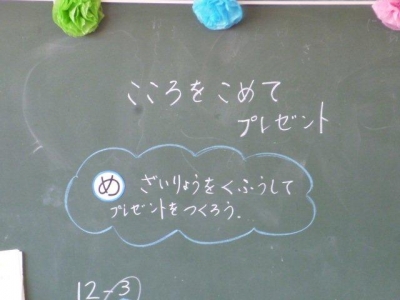 こころをこめて
プレゼント
め ざいりょうをくふうして
プレゼントをつくろう.
12-3